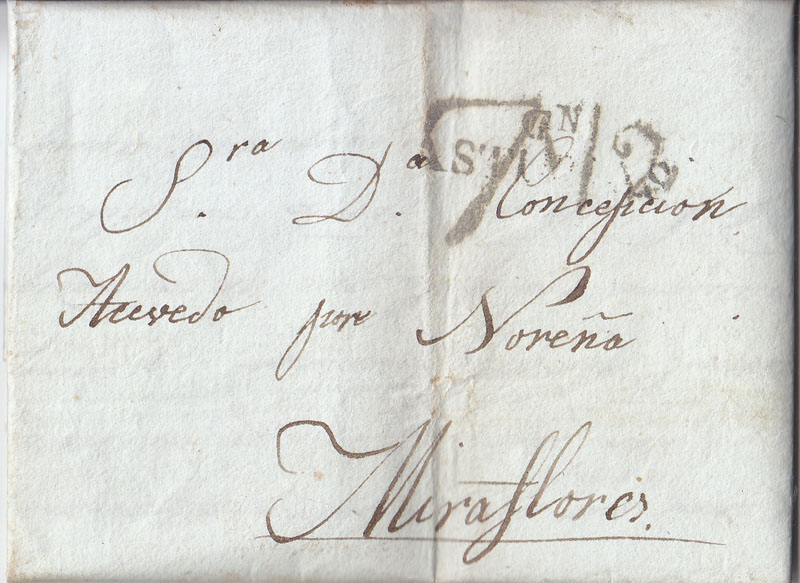 S.ra D.a Concepcion
Acevedo por Noreña
Miraflores.